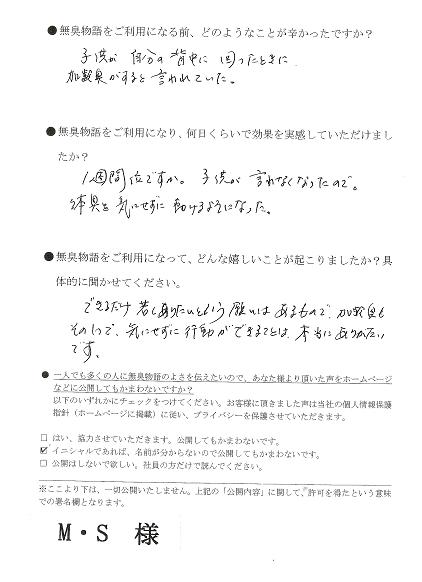 ●無臭物語をご利用になる前、どのようなことが辛かったですか？
子供が 自分の背中に 回ったときに
加齢臭がすると 言われていた。
●無臭物語をご利用になり、何日くらいで効果を実感していただけまし
たか？
1週間位ですか。子供が 言わなくなったので。
体臭を 気にせずに 動けるようになった。
●無臭物語をご利用になって、どんな嬉しいことが起こりましたか？具
体的に聞かせてください。
できるだけ 若くありたいという 願いは あるもので、加齢臭も
その1つで、気にせずに 行動ができることは、本当に ありがたい
です。
● 一人でも多くの人に無臭物語のよさを伝えたいので、あなた様より頂いた声をホームページ
などに公開してもかまわないですか？
以下のいずれかにチェックをつけてください。お客様に頂きました声は当社の個人情報保護
指針（ホームページに掲載）に従い、プライバシーを保護させていただきます。
□ はい、協力させていただきます。公開してもかまわないです。
☑ イニシャルであれば、名前が分からないので公開してもかまわないです。
□ 公開はしないで欲しい。社員の方だけで読んでください。
※ここより下は、一切公開いたしません。上記の「公開内容」に関して、許可を得たという意味
での署名欄となります。
M・S 様